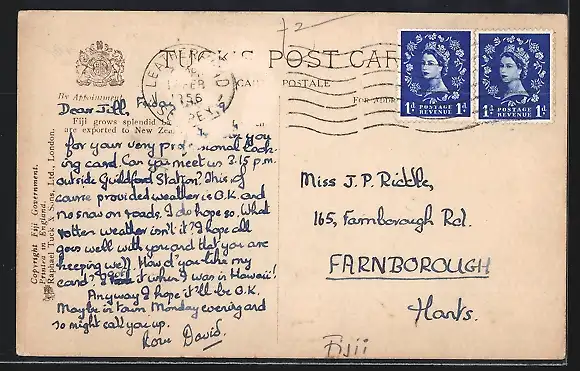 72
TUCK'S POST CARD
CARTE POSTALE
FOR ADDRESS
By Appointment
LEATHERHEAD
FEB
1956
SURREY
Dear Jill, Friday
Fiji grows splendid
are exported to New Zea
you
for your very professional look-
ing card. Can you meet us 2.15 p.m.
outside Guildford Station? This of
course provided weather is O.K. and
no snow on roads. I do hope so. What
rotten weather isn't it? I hope all
goes well with you and that you are
keeping well. How d'you like my
card? I it when I was in Hawaii!
Anyway I hope it'll be O.K.
Maybe in town Monday evening and
so might call you up.
Love David.
Copyright Fiji Government.
Printed in England.
Raphael Tuck & Sons, Ltd., London.
POSTAGE
REVENUE
1d 1d
POSTAGE
REVENUE
1d 1d
Miss J. P. Riddle,
165, Farnborough Rd.
FARNBOROUGH
Hants.
Fiji